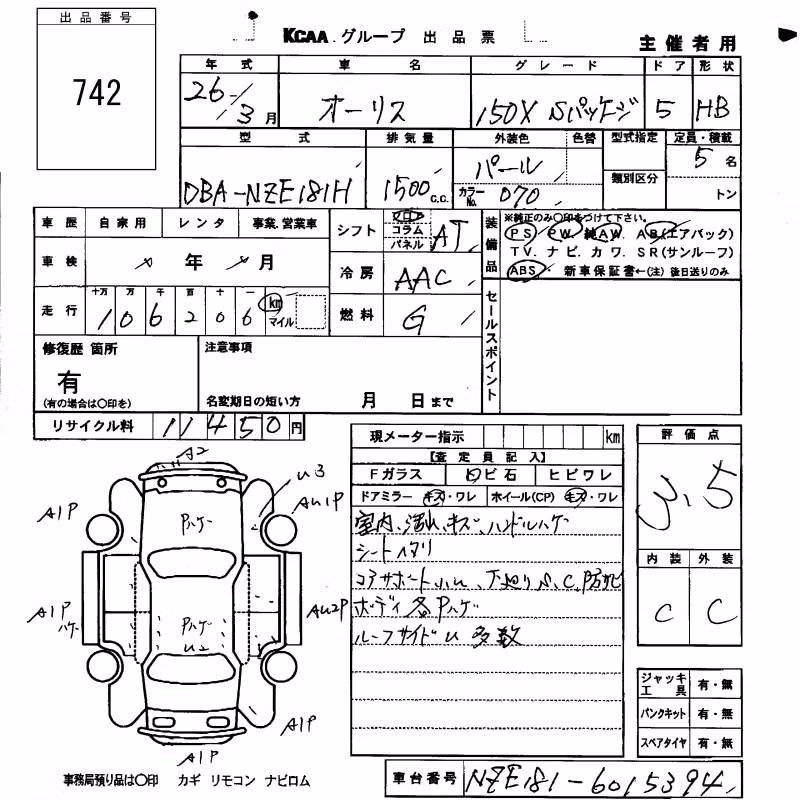 出品番号
742
KCAA グループ 出品票
主催者用
年式 車名 グレード ドア 形状
26 3月 オーリス 150X Sパッケージ 5 HB
型式 排気量 外装色 色替 型式指定 定員・積載
DBA-NZE181H 1500 c.c. パール 5名
カラーNo. 070 類別区分 トン
車歴 自家用 レンタ 事業.営業車
シフト フロア コラム パネル AT
装備品 ※純正のみ〇印をつけて下さい。
PS PW 純AW. AB(エアバック)
TV. ナビ. カワ. SR(サンルーフ)
ABS 新車保証書←(注) 後日送りのみ
車検 年 月
冷房 AAC
走行 十万 万 千 百 十 一
106206 km マイル
燃料 G
セールスポイント
修復歴 箇所
有
(有の場合は〇印を)
注意事項
名変期日の短い方 月 日まで
リサイクル料 11450円
現メーター指示 km
評価点
3.5
【査定員記入】
Fガラス 飛ビ石 ヒビワレ
ドアミラー キズ・ワレ ホイール(CP) キズ・ワレ
室内、汚れ、キズ、ハンドルハゲ
シートヘタリ
コアサポート 下廻りS、C、防サビ
ボディ各Pハゲ
ルーフサイドU 多数
内装 外装
C C
A2
U3
A1P
AU1P
Pハゲ
A1P
ハゲ
AU2P
Pハゲ
U2
A1P
A1P
A1P
ジャッキ工具 有・無
パンクキット 有・無
スペアタイヤ 有・無
事務局預り品は〇印 カギ リモコン ナビロム
車台番号 NZE181-6015394